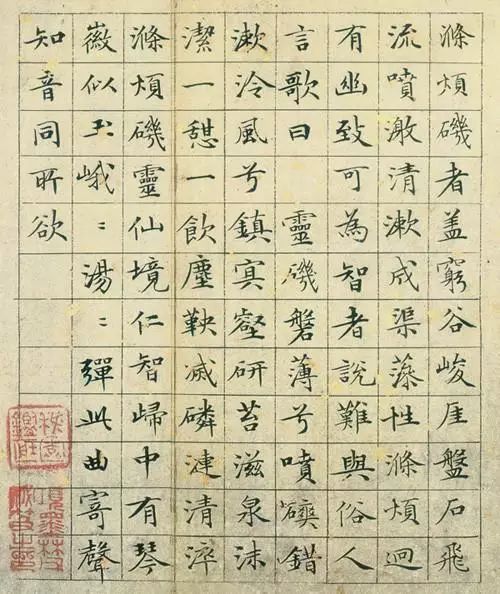 滌煩磯者盖窮谷峻厓盤石飛
流噴激清漱成渠藻性滌煩迴
有幽致可為智者說難與俗人
言歌曰 靈磯磐薄兮噴錯
漱泠風兮鎮冥壑研苔滋泉沫
潔一憇一飲塵鞅滅磷漣清淬
滌煩磯靈仙境仁智歸中有琴
徽似玉峨〻湯〻彈此曲寄聲
知音同所欲